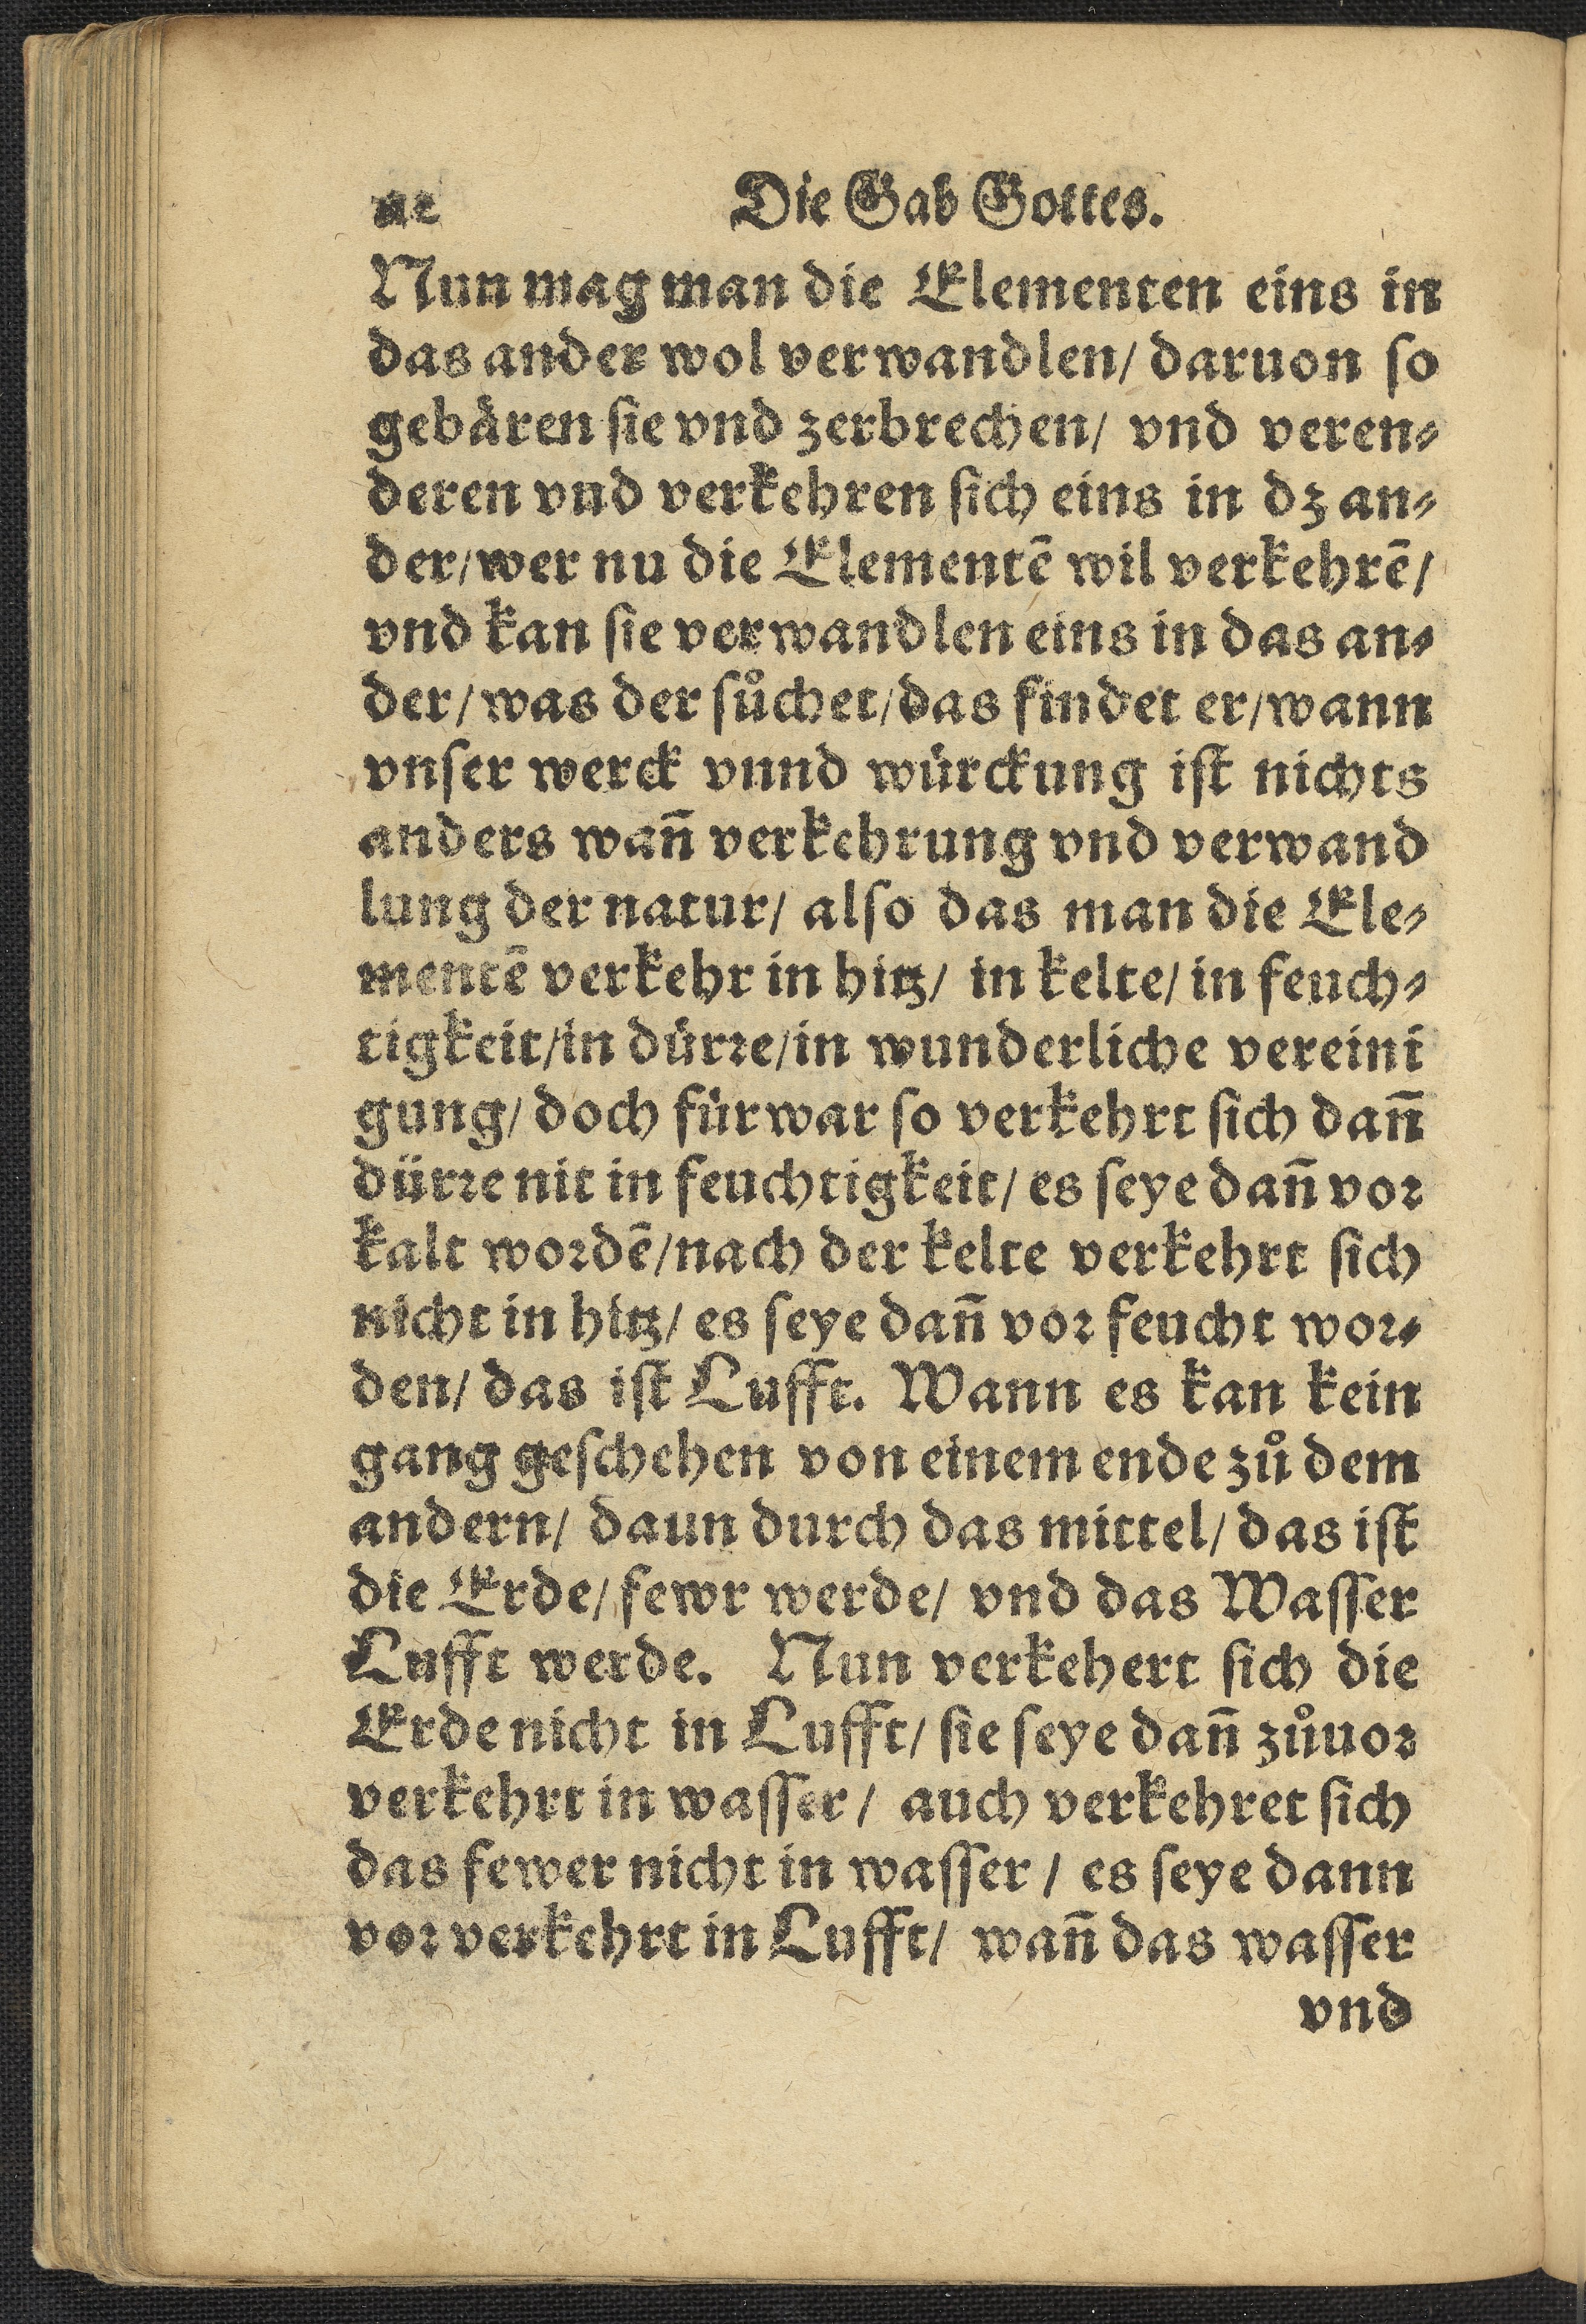 Die Gab Gottes.
Nun mag man die Elementen eins in
das ander wol verwandlen/ daruon so
gebären sie vnd zerbrechen/ vnd veren⸗
deren vnd verkehren sich eins in dz an⸗
der/wer nu die Elementē wil verkehrē/
vnd kan sie verwandlen eins in das an⸗
der/ was der sůchet/das findet er/wann
vnser werck vnnd würckung ist nichts
anders wañ verkehrung vnd verwand
lung der natur/ also das man die Ele⸗
mentē verkehr in hitz/ in kelte/ in feuch⸗
tigkeit/in dürre/in wunderliche vereini
gung/ doch fürwar so verkehrt sich dañ
dürre nit in feuchtigkeit/ es seye dañ vor
kalt wordē/nach der kelte verkehrt sich
nicht in hitz/ es seye dañ vor feucht wor⸗
den/ das ist Lufft. Wann es kan kein
gang geschehen von einem ende zů dem
andern/ daun durch das mittel/ das ist
die Erde/ fewr werde/ vnd das Wasser
Lufft werde. Nun verkehert sich die
Erde nicht in Lufft/ sie seye dañ zůuor
verkehrt in wasser/ auch verkehret sich
das fewer nicht in wasser/ es seye dann
vor verkehrt in Lufft/ wañ das wasser
vnd